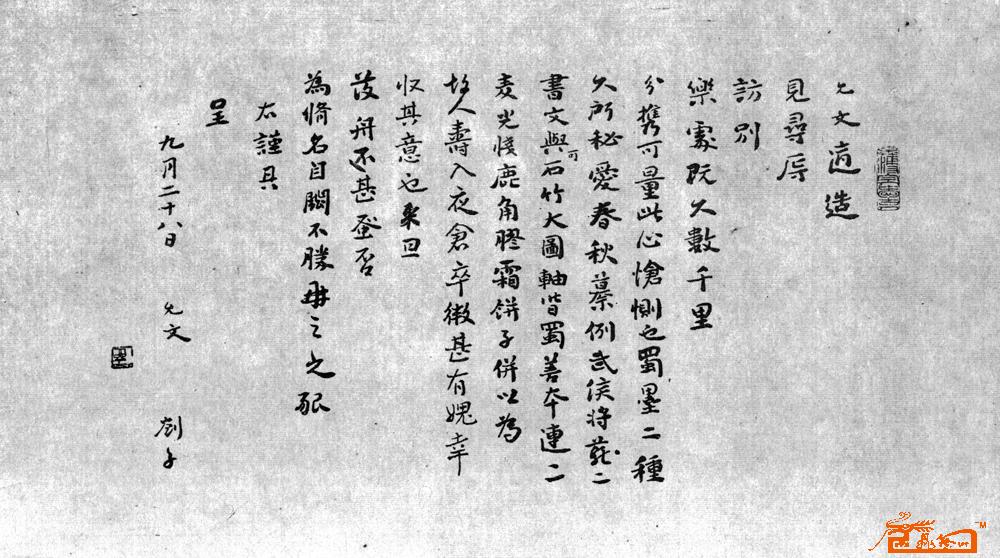 允文適造
見尋辱
訪別
樂處既久數千里
分攜可量此心愴惻也蜀墨二種
久所秘愛春秋纂例武侯將苑二
書文與可石竹大圖軸皆蜀善本連二
麦光牋鹿角膠霜餅子併以為
故人壽入夜倉卒微甚有媿幸
收其意也
舟不甚
為脩名自不勝之
右謹具
呈
九月二十八日 允文 劄子